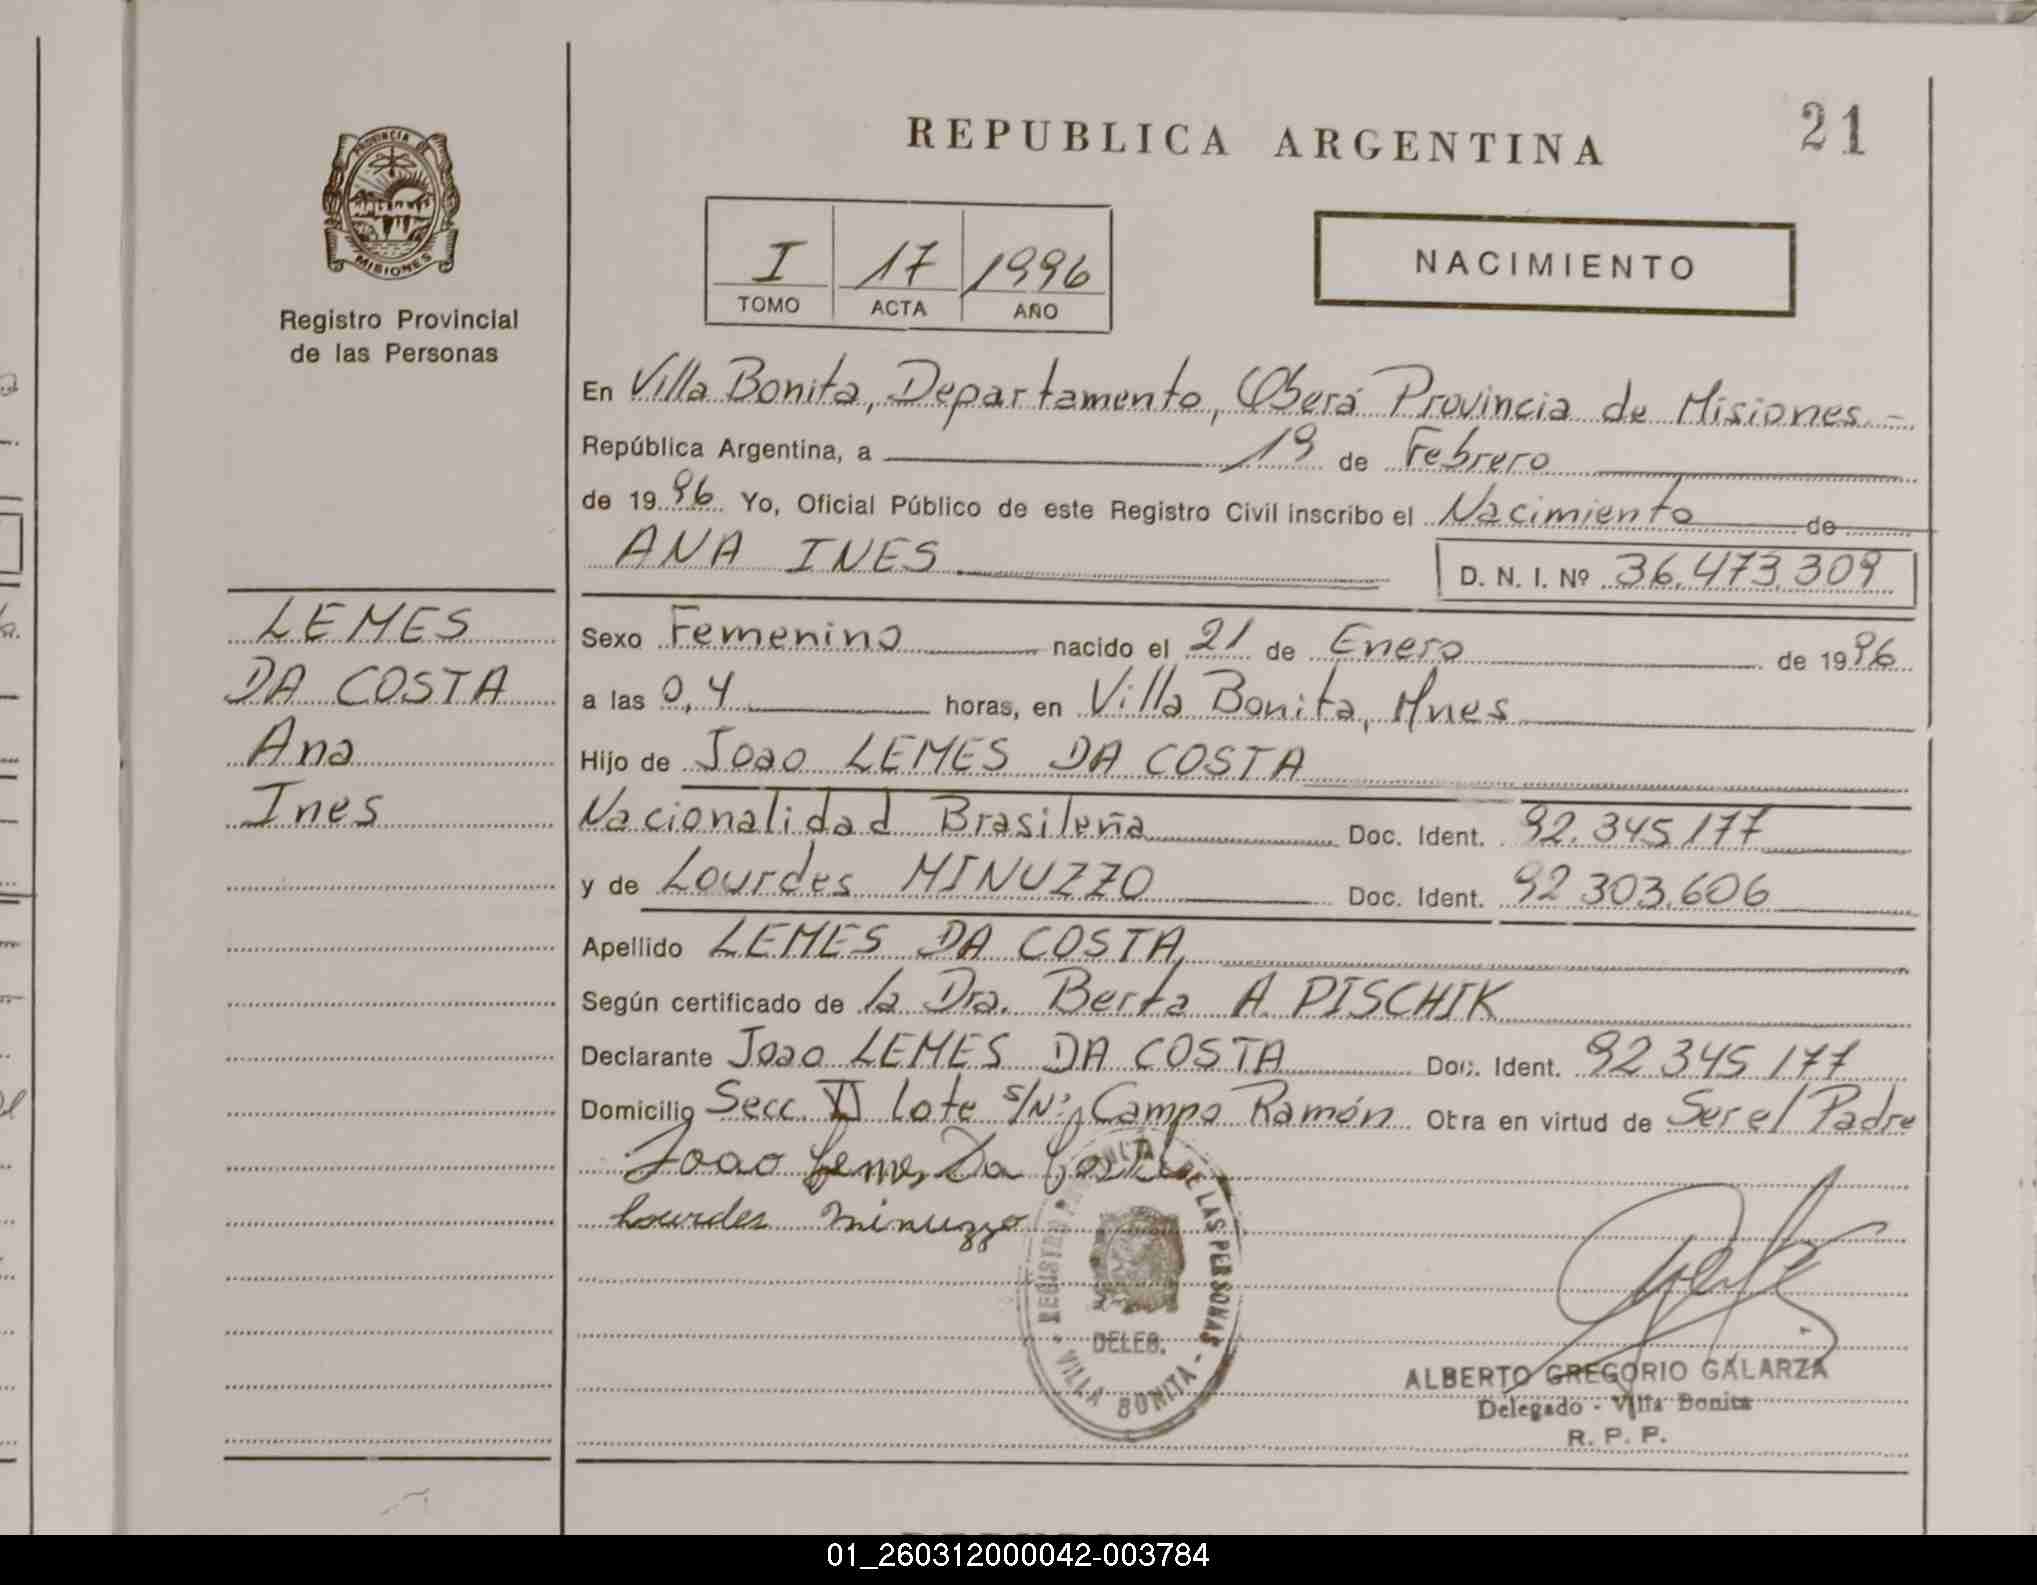 REPUBLICA ARGENTINA
21
PROVINCIA DE
MISIONES
Registro Provincial
de las Personas
I 17 1996
TOMO ACTA AÑO
NACIMIENTO
En Villa Bonita, Departamento, Oberá Provincia de Misiones.-
República Argentina, a 19 de Febrero
de 1996 Yo, Oficial Público de este Registro Civil inscribo el Nacimiento de
ANA INES
D. N. I. Nº 36.473.309
LEMES
DA COSTA
Ana
Ines
Sexo Femenino nacido el 21 de Enero de 1996
a las 0,4 horas, en Villa Bonita, Mnes
Hijo de Joao LEMES DA COSTA
Nacionalidad Brasileña Doc. Ident. 92.345.177
y de Lourdes MINUZZO Doc. Ident. 92 303.606
Apellido LEMES DA COSTA
Según certificado de la Dra. Berta A. PISCHIK
Declarante Joao LEMES DA COSTA Doc. Ident. 92 345 177
Domicilio Secc. VI Lote s/Nº, Campo Ramón Otra en virtud de Ser el Padre
Joao Lemes Da Costa
Lourdes Minuzzo
REGISTRO DE LAS PERSONAS
DELEG.
- VILLA BONITA -
ALBERTO GREGORIO GALARZA
Delegado - Villa Bonita
R. P. P.
01_260312000042-003784